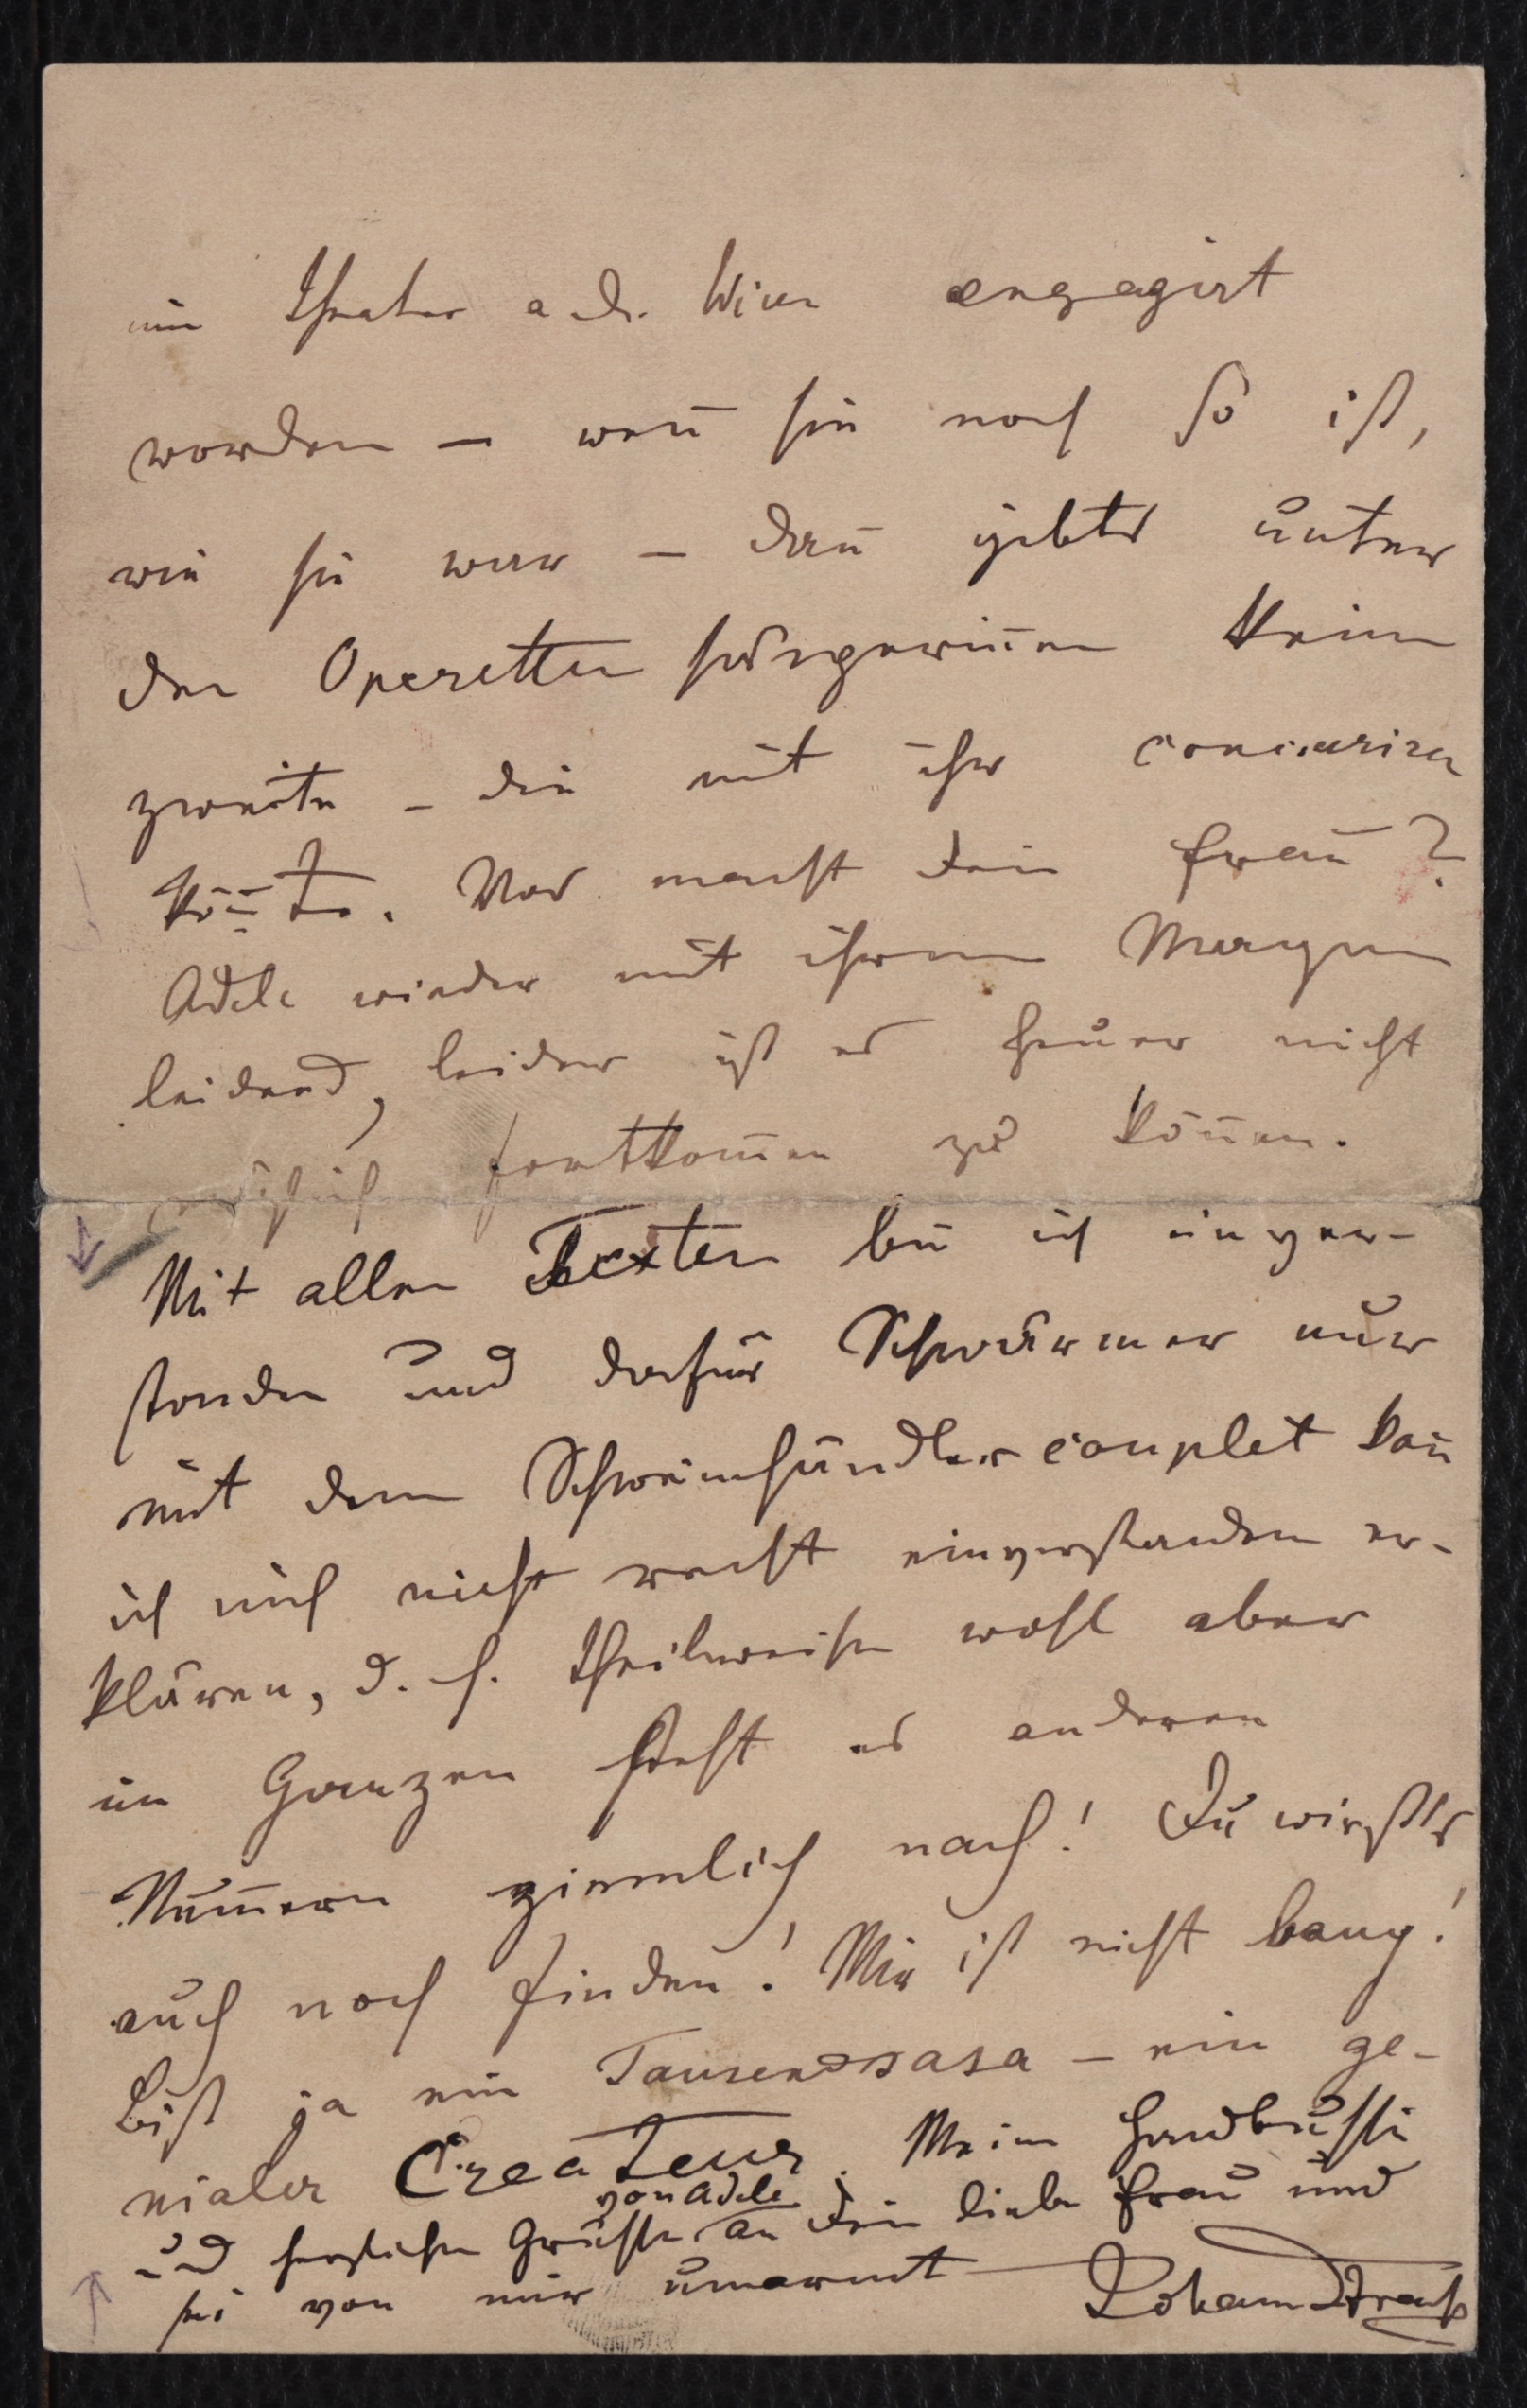 im Theater a d. Wien engagirt
worden — wen̄ sie noch so ist,
wie sie war — dan̄ gibts unter
den Operetten sängerin̄en keine
zweite — die mit ihr concuriren
kön̄te. Was macht dein Frau?
Adele wieder mit ihrem Magen
leidend, leider ist es heuer nicht
möglich fortkom̄en zu kön̄en.
Mit allen Texten bin ich einver-
standen und dafür Schwärmer nur
mit dem Schweinehändler couplet kan̄
ich mich nicht recht einverstanden er-
klären, d. h. theilweise wohl aber
im Ganzen steht es anderen
Num̄ern ziemlich nach! Du wirsts
auch noch finden! Mir ist nicht bang!
Bist ja ein Tausendsasa — ein ge-
nialer Createur. Meine Handküsse
und herzliche Grüsse von Adele an Dein liebe Frau und
sei von mir umarmt Johann Strauß